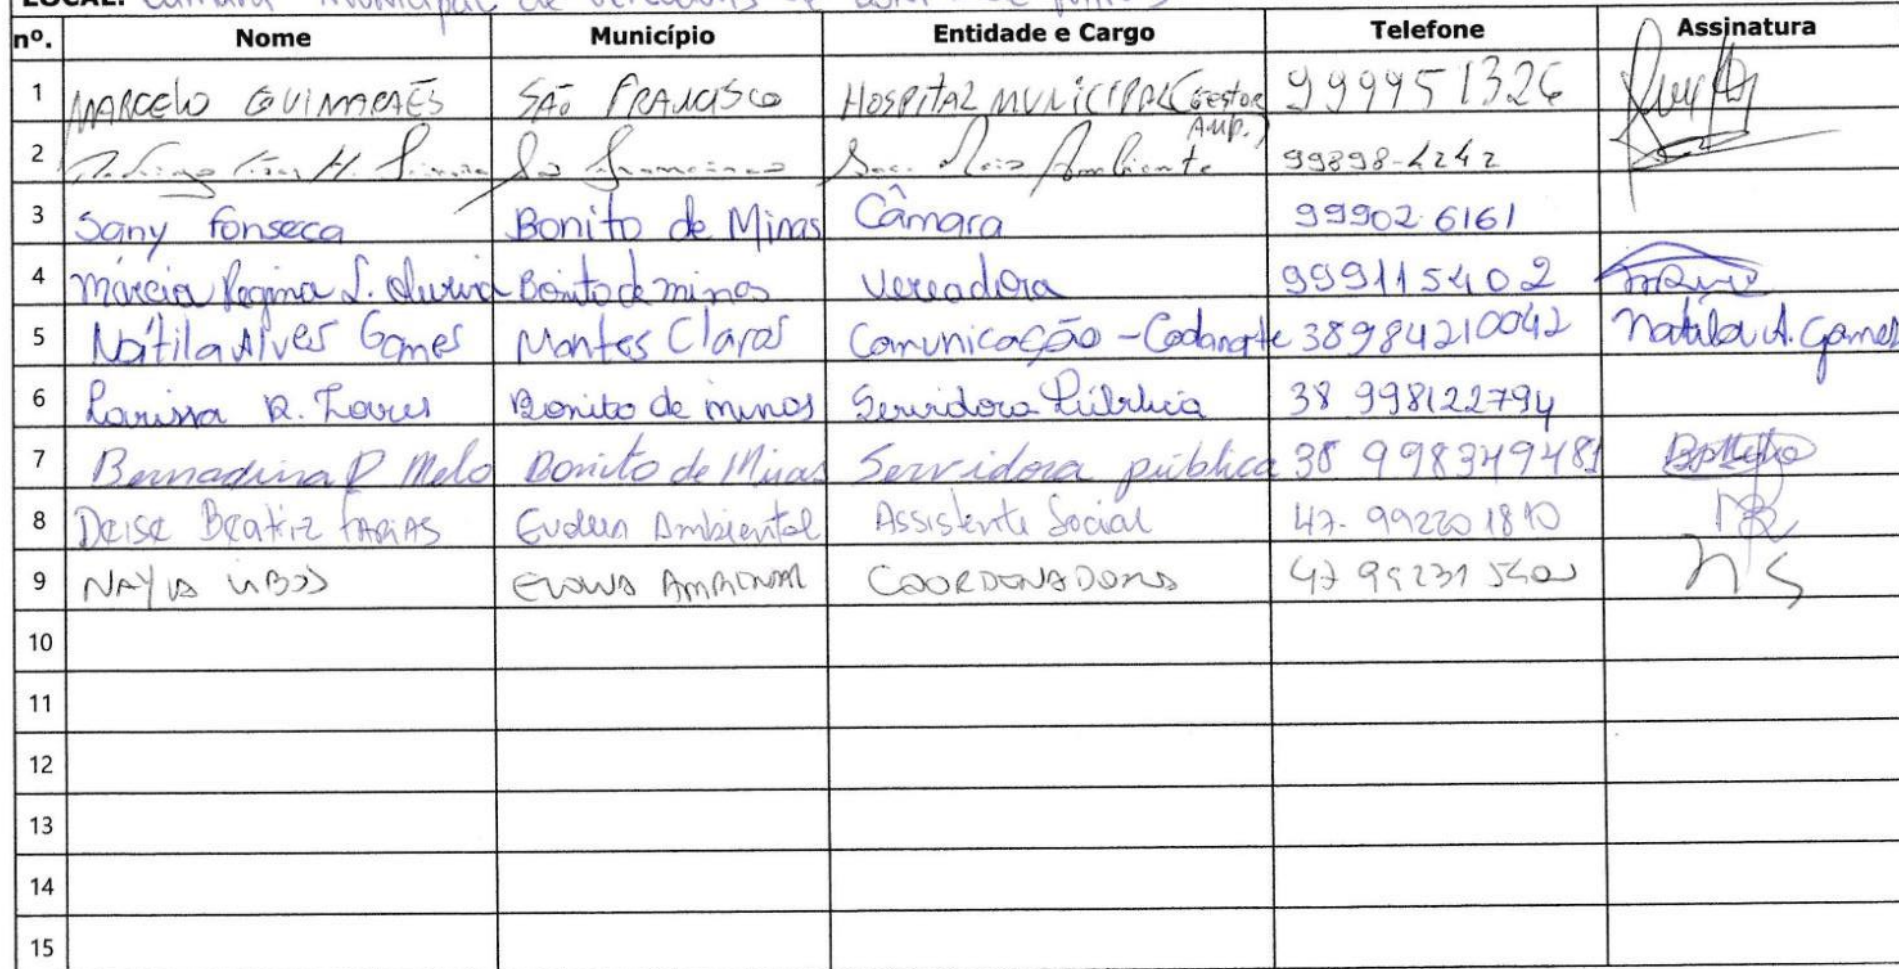 LOCAL: Câmara Municipal de Vereadores de Bonito de Minas
nº. Nome Município Entidade e Cargo Telefone Assinatura
1 MARCELO GUIMARAES SÃO FRANCISCO HOSPITAL MUNICIPAL (Gestor Amb.) 999951326
2 São Francisco Sec. Meio Ambiente 99898-4242
3 Sany Fonseca Bonito de Minas Câmara 99902.6161
4 Márcia Regina S. Oliveira Bonito de minas Vereadora 999115402
5 Nátila Alves Gomes Montes Claros Comunicação - Codanorte 38984210042 Natila A. Gomes
6 Larissa R. Bonito de minas Servidora Pública 38 998122794
7 Bernadina P Melo Bonito de Minas Servidora pública 38 998349481
8 Deise Beatriz FARIAS Ambiental Assistente Social 47-992201810
9 COORDENADORA
10
11
12
13
14
15